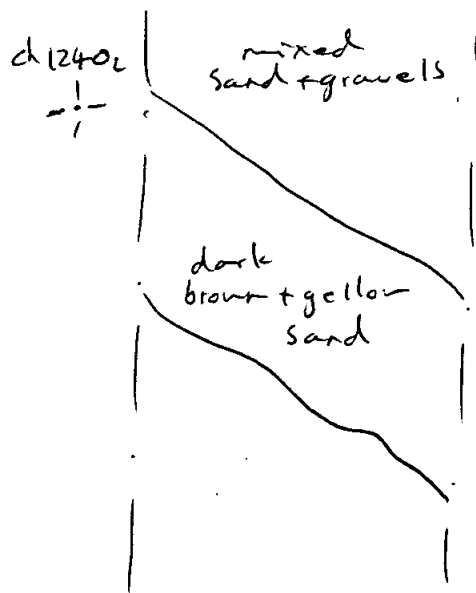 ch 12402
mixed
sand + gravels
dark
brown + yellow
sand